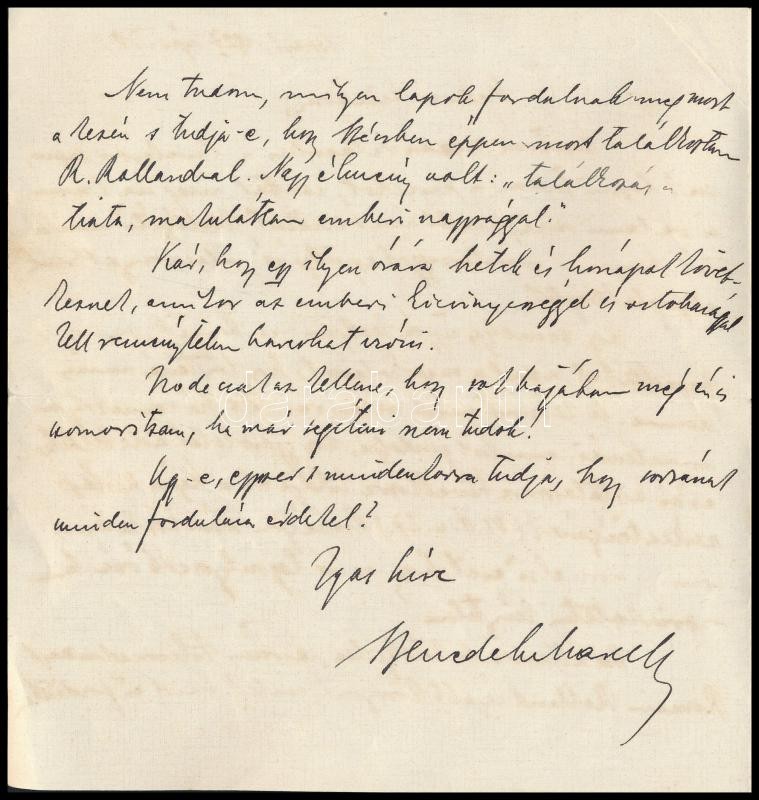 Nem tudom, milyen lapok fordulnak meg most
a kezén s tudja-e, hogy Bécsben éppen most találkoztam
R. Rollanddal. Nagy élmény volt: „találkozás a
tiszta, makulátlan emberi nagysággal."
Kár, hogy egy ilyen órára hetek és hónapok követ-
keznek, amikor az emberi kicsinyességgel és ostobasággal
kell reménytelen harcokat vívni.
No de csak az kellene, hogy sok bajában még én is
szomorítsam, ha már segíteni nem tudok!
Ugy-e, egyszer s mindenkorra tudja, hogy sorsának
minden fordulása érdekel?
Igaz híve
Benedek Marcell
darabanth